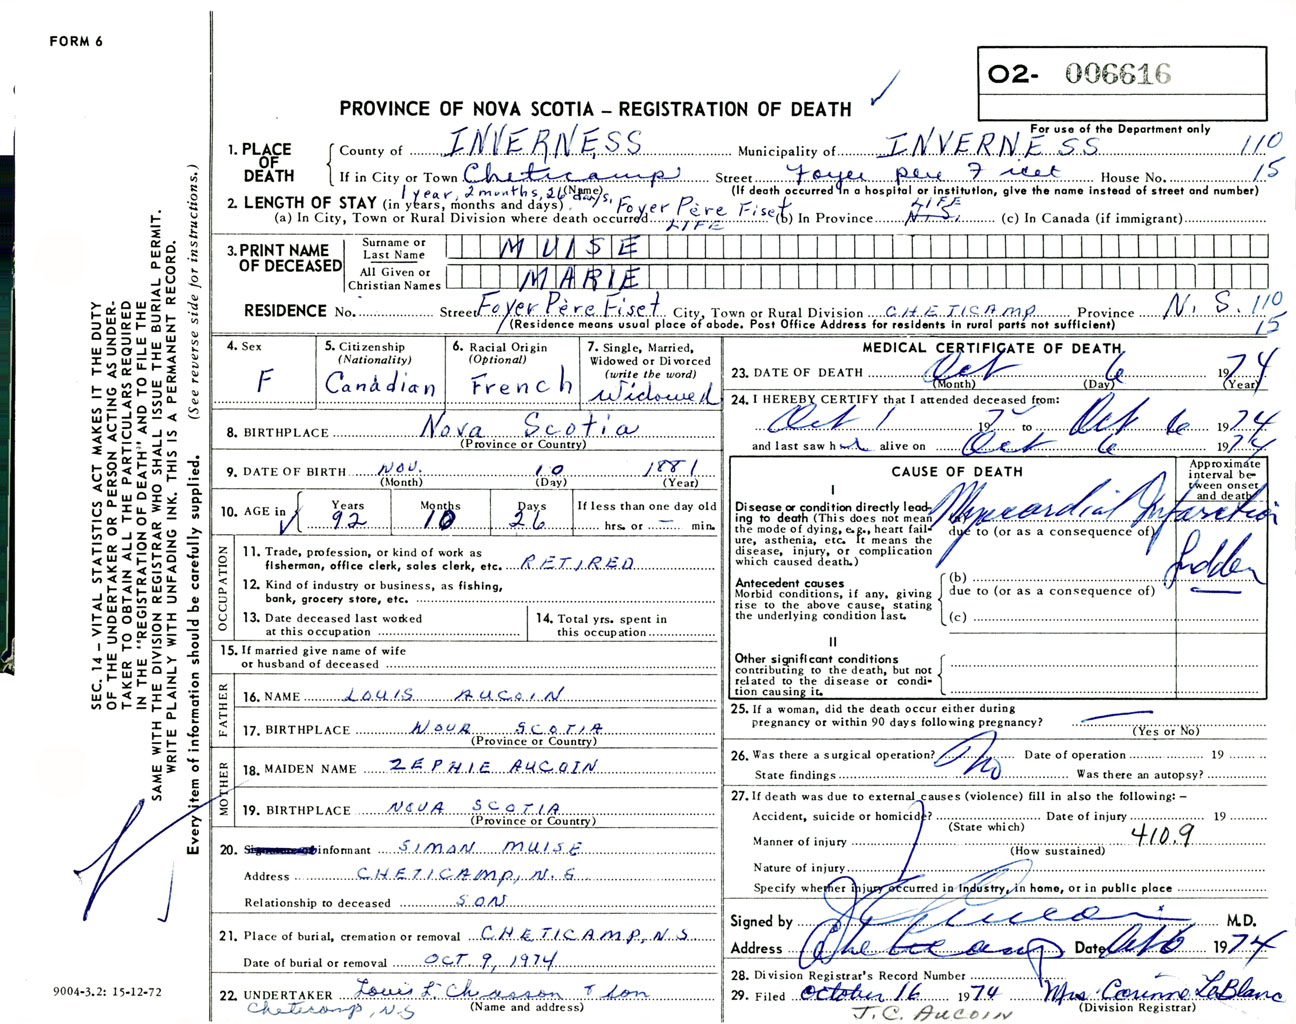 FORM 6
O2- 006616
PROVINCE OF NOVA SCOTIA – REGISTRATION OF DEATH ✓
For use of the Department only
1. PLACE OF DEATH
County of INVERNESS Municipality of INVERNESS 110
If in City or Town Cheticamp Street Foyer père Fiset House No. 15
(Name) (If death occurred in a hospital or institution, give the name instead of street and number)
1 year, 2 months, 26 days,
2. LENGTH OF STAY (in years, months and days)
(a) In City, Town or Rural Division where death occurred Foyer Père Fiset LIFE (b) In Province LIFE N.S. (c) In Canada (if immigrant)
3. PRINT NAME OF DECEASED
Surname or Last Name MUISE
All Given or Christian Names MARIE
RESIDENCE No. Street Foyer Père Fiset City, Town or Rural Division CHETICAMP Province N.S. 110
(Residence means usual place of abode. Post Office Address for residents in rural parts not sufficient) 15
4. Sex F
5. Citizenship (Nationality) Canadian
6. Racial Origin (Optional) French
7. Single, Married, Widowed or Divorced (write the word) Widowed
8. BIRTHPLACE Nova Scotia
(Province or Country)
9. DATE OF BIRTH NOV. 10 1881
(Month) (Day) (Year)
10. AGE in Years 92 Months 10 Days 26 If less than one day old hrs. or — min.
OCCUPATION
11. Trade, profession, or kind of work as fisherman, office clerk, sales clerk, etc. RETIRED
12. Kind of industry or business, as fishing, bank, grocery store, etc.
13. Date deceased last worked at this occupation
14. Total yrs. spent in this occupation
15. If married give name of wife or husband of deceased
FATHER
16. NAME LOUIS AUCOIN
17. BIRTHPLACE NOVA SCOTIA
(Province or Country)
MOTHER
18. MAIDEN NAME ZEPHIE AUCOIN
19. BIRTHPLACE NOVA SCOTIA
(Province or Country)
20. informant SIMON MUISE
Address CHETICAMP, N.S
Relationship to deceased SON
21. Place of burial, cremation or removal CHETICAMP, N.S
Date of burial or removal OCT 9, 1974
22. UNDERTAKER Louis L. Chiasson & Son
Cheticamp, N.S (Name and address)
MEDICAL CERTIFICATE OF DEATH
23. DATE OF DEATH Oct 6 1974
(Month) (Day) (Year)
24. I HEREBY CERTIFY that I attended deceased from:
Oct 1 19 to Oct 6 1974
and last saw h alive on Oct 6 1974
CAUSE OF DEATH
Approximate interval between onset and death
I
Disease or condition directly leading to death (This does not mean the mode of dying, e.g., heart failure, asthenia, etc. It means the disease, injury, or complication which caused death.)
(a) Myocardial Infarction
due to (or as a consequence of)
Sudden
Antecedent causes
Morbid conditions, if any, giving rise to the above cause, stating the underlying condition last.
(b)
due to (or as a consequence of)
(c)
II
Other significant conditions
contributing to the death, but not related to the disease or condition causing it.
25. If a woman, did the death occur either during pregnancy or within 90 days following pregnancy? —
(Yes or No)
26. Was there a surgical operation? No Date of operation 19
State findings Was there an autopsy?
27. If death was due to external causes (violence) fill in also the following: –
Accident, suicide or homicide? Date of injury 19
(State which)
Manner of injury 410.9
(How sustained)
Nature of injury
Specify whether injury occurred in Industry, in home, or in public place
Signed by M.D.
Address Cheticamp Date Oct 6 1974
28. Division Registrar's Record Number
29. Filed October 16 1974 Mrs. Corinne LeBlanc
(Division Registrar)
J.C. AUCOIN
SEC. 14 – VITAL STATISTICS ACT MAKES IT THE DUTY
OF THE UNDERTAKER OR PERSON ACTING AS UNDER-
TAKER TO OBTAIN ALL THE PARTICULARS REQUIRED
IN THE "REGISTRATION OF DEATH" AND TO FILE THE
SAME WITH THE DIVISION REGISTRAR WHO SHALL ISSUE THE BURIAL PERMIT.
WRITE PLAINLY WITH UNFADING INK. THIS IS A PERMANENT RECORD.
Every item of information should be carefully supplied. (See reverse side for instructions.)
9004-3.2: 15-12-72